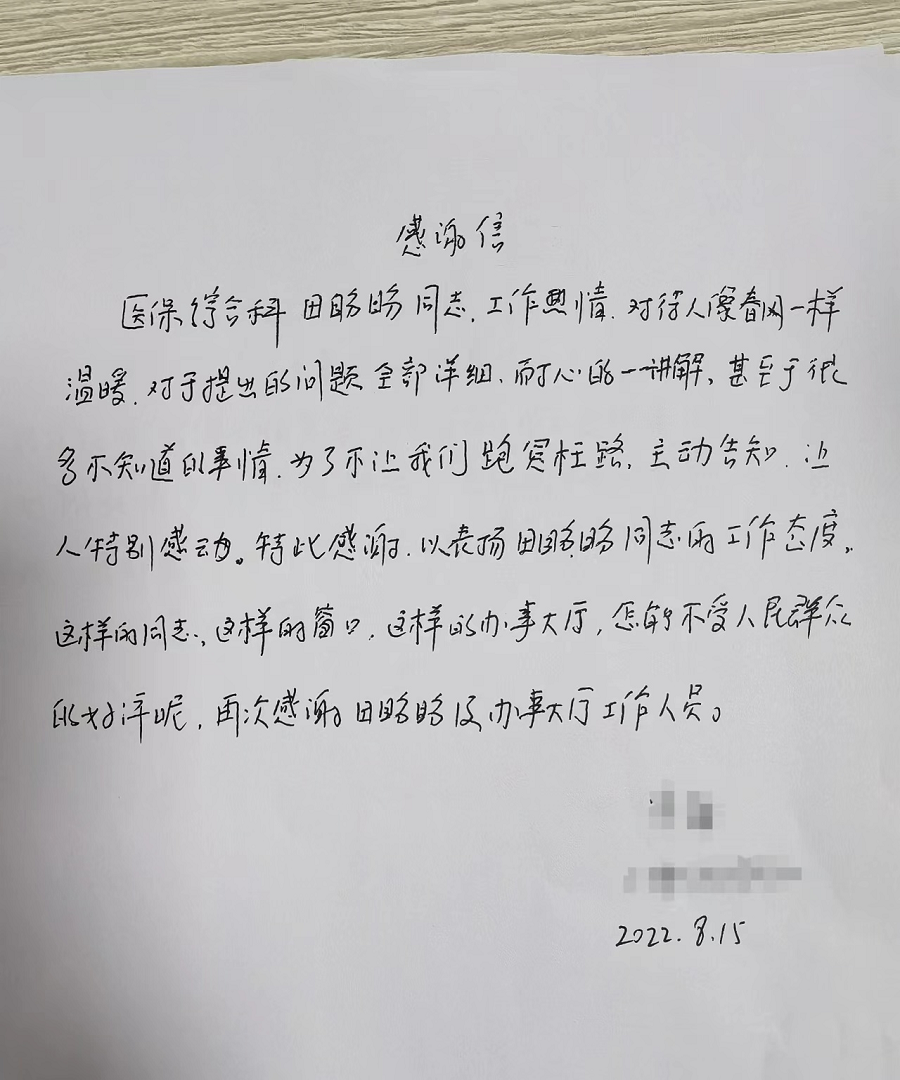 感谢信
医保综合科 田盼盼同志,工作热情.对待人像春风一样
温暖.对于提出的问题全部详细、耐心的一一讲解、甚至于很
多不知道的事情.为了不让我们跑冤枉路.主动告知.让
人特别感动。特此感谢.以表扬田盼盼同志的工作态度。
这样的同志、这样的窗口,这样的办事大厅,怎能不受人民群众
的好评呢,再次感谢田盼盼及办事大厅工作人员。
2022.8.15